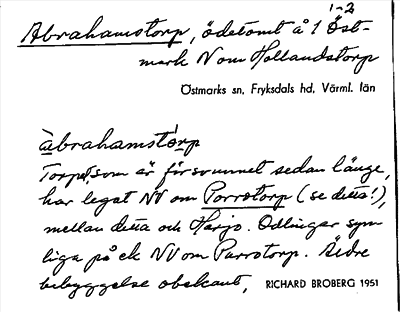 1-2
Abrahamstorp, ödetomt å 1 Öst-
mark N om Hollandstorp
Östmarks sn, Fryksdals hd, Värml. län
àbrahamsto̱rp
Torpet, som är försvunnet sedan länge,
har legat NV om Porrotorp (se detta!),
mellan detta och Harjo. Odlingar syn
liga på ek NV om Parrotorp. Äldre
bebyggelse obekant,
RICHARD BROBERG 1951